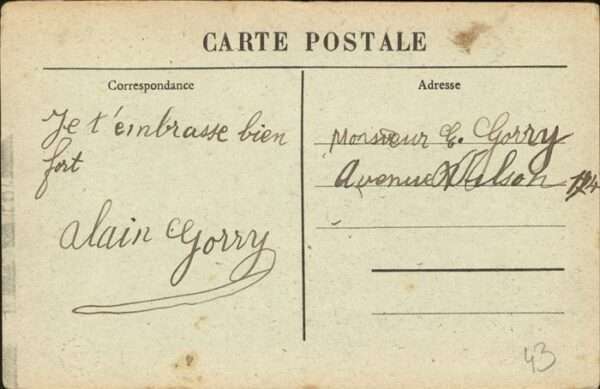 CARTE POSTALE
Correspondance
Adresse
Je t'embrasse bien
fort
Alain Gorry
Monsieur E. Gorry
Avenue Wilson 124
43